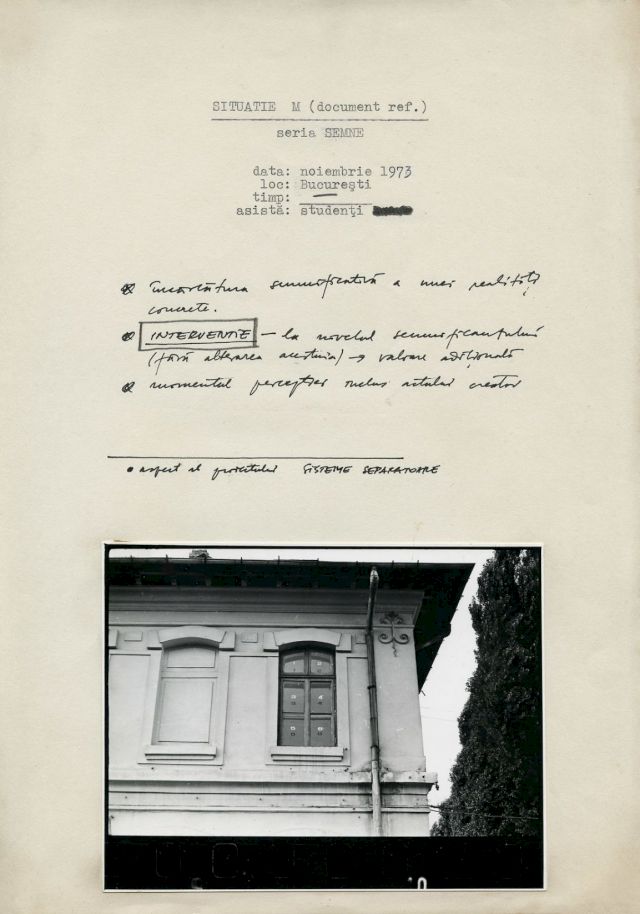 SITUATIE M (document ref.)
seria SEMNE
data: noiembrie 1973
loc: Bucureşti
timp: —
asistă: studenţi
încărcătura semnificativă a unei realităţi
concrete.
INTERVENTIE — la nivelul semnificantului
(fără alterarea acestuia) → valoare adiţională
momentul percepţiei inclus actului creator
• aspect al proiectului SISTEME SEPARATOARE
1 2
3 4
5 6